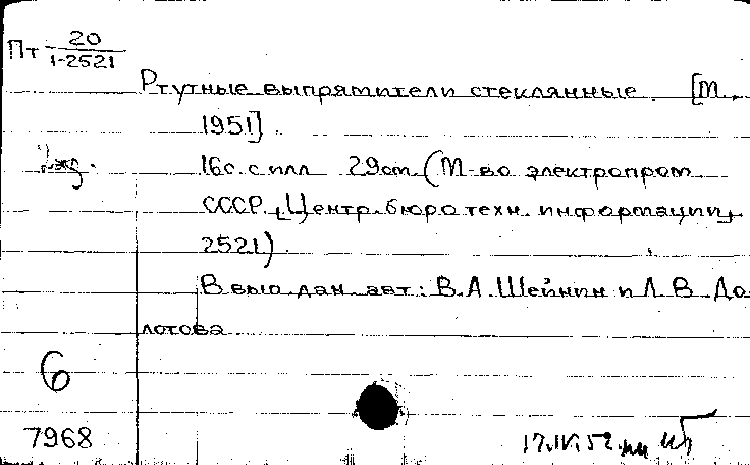 Пт 20
1-2521
Ртутные выпрямители стеклянные. [М.,
1951].
16с. с илл 29см. (М-во электропром
СССР. Центр. бюро техн. информации,
2521).
В вып. дан. авт: В.А.Шейнин и Л.В.До
лотова
6
7968
17.IV.52